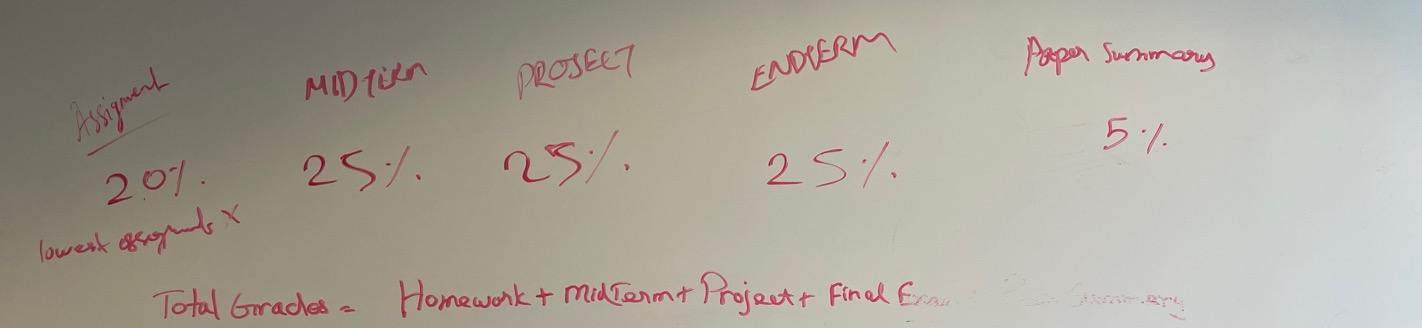 Assigment MIDterm PROJECT ENDTERM Paper Summary
20% 25% 25% 25% 5%
lowest x
Total Grades = Homework + MidTerm + Project + Final Summary